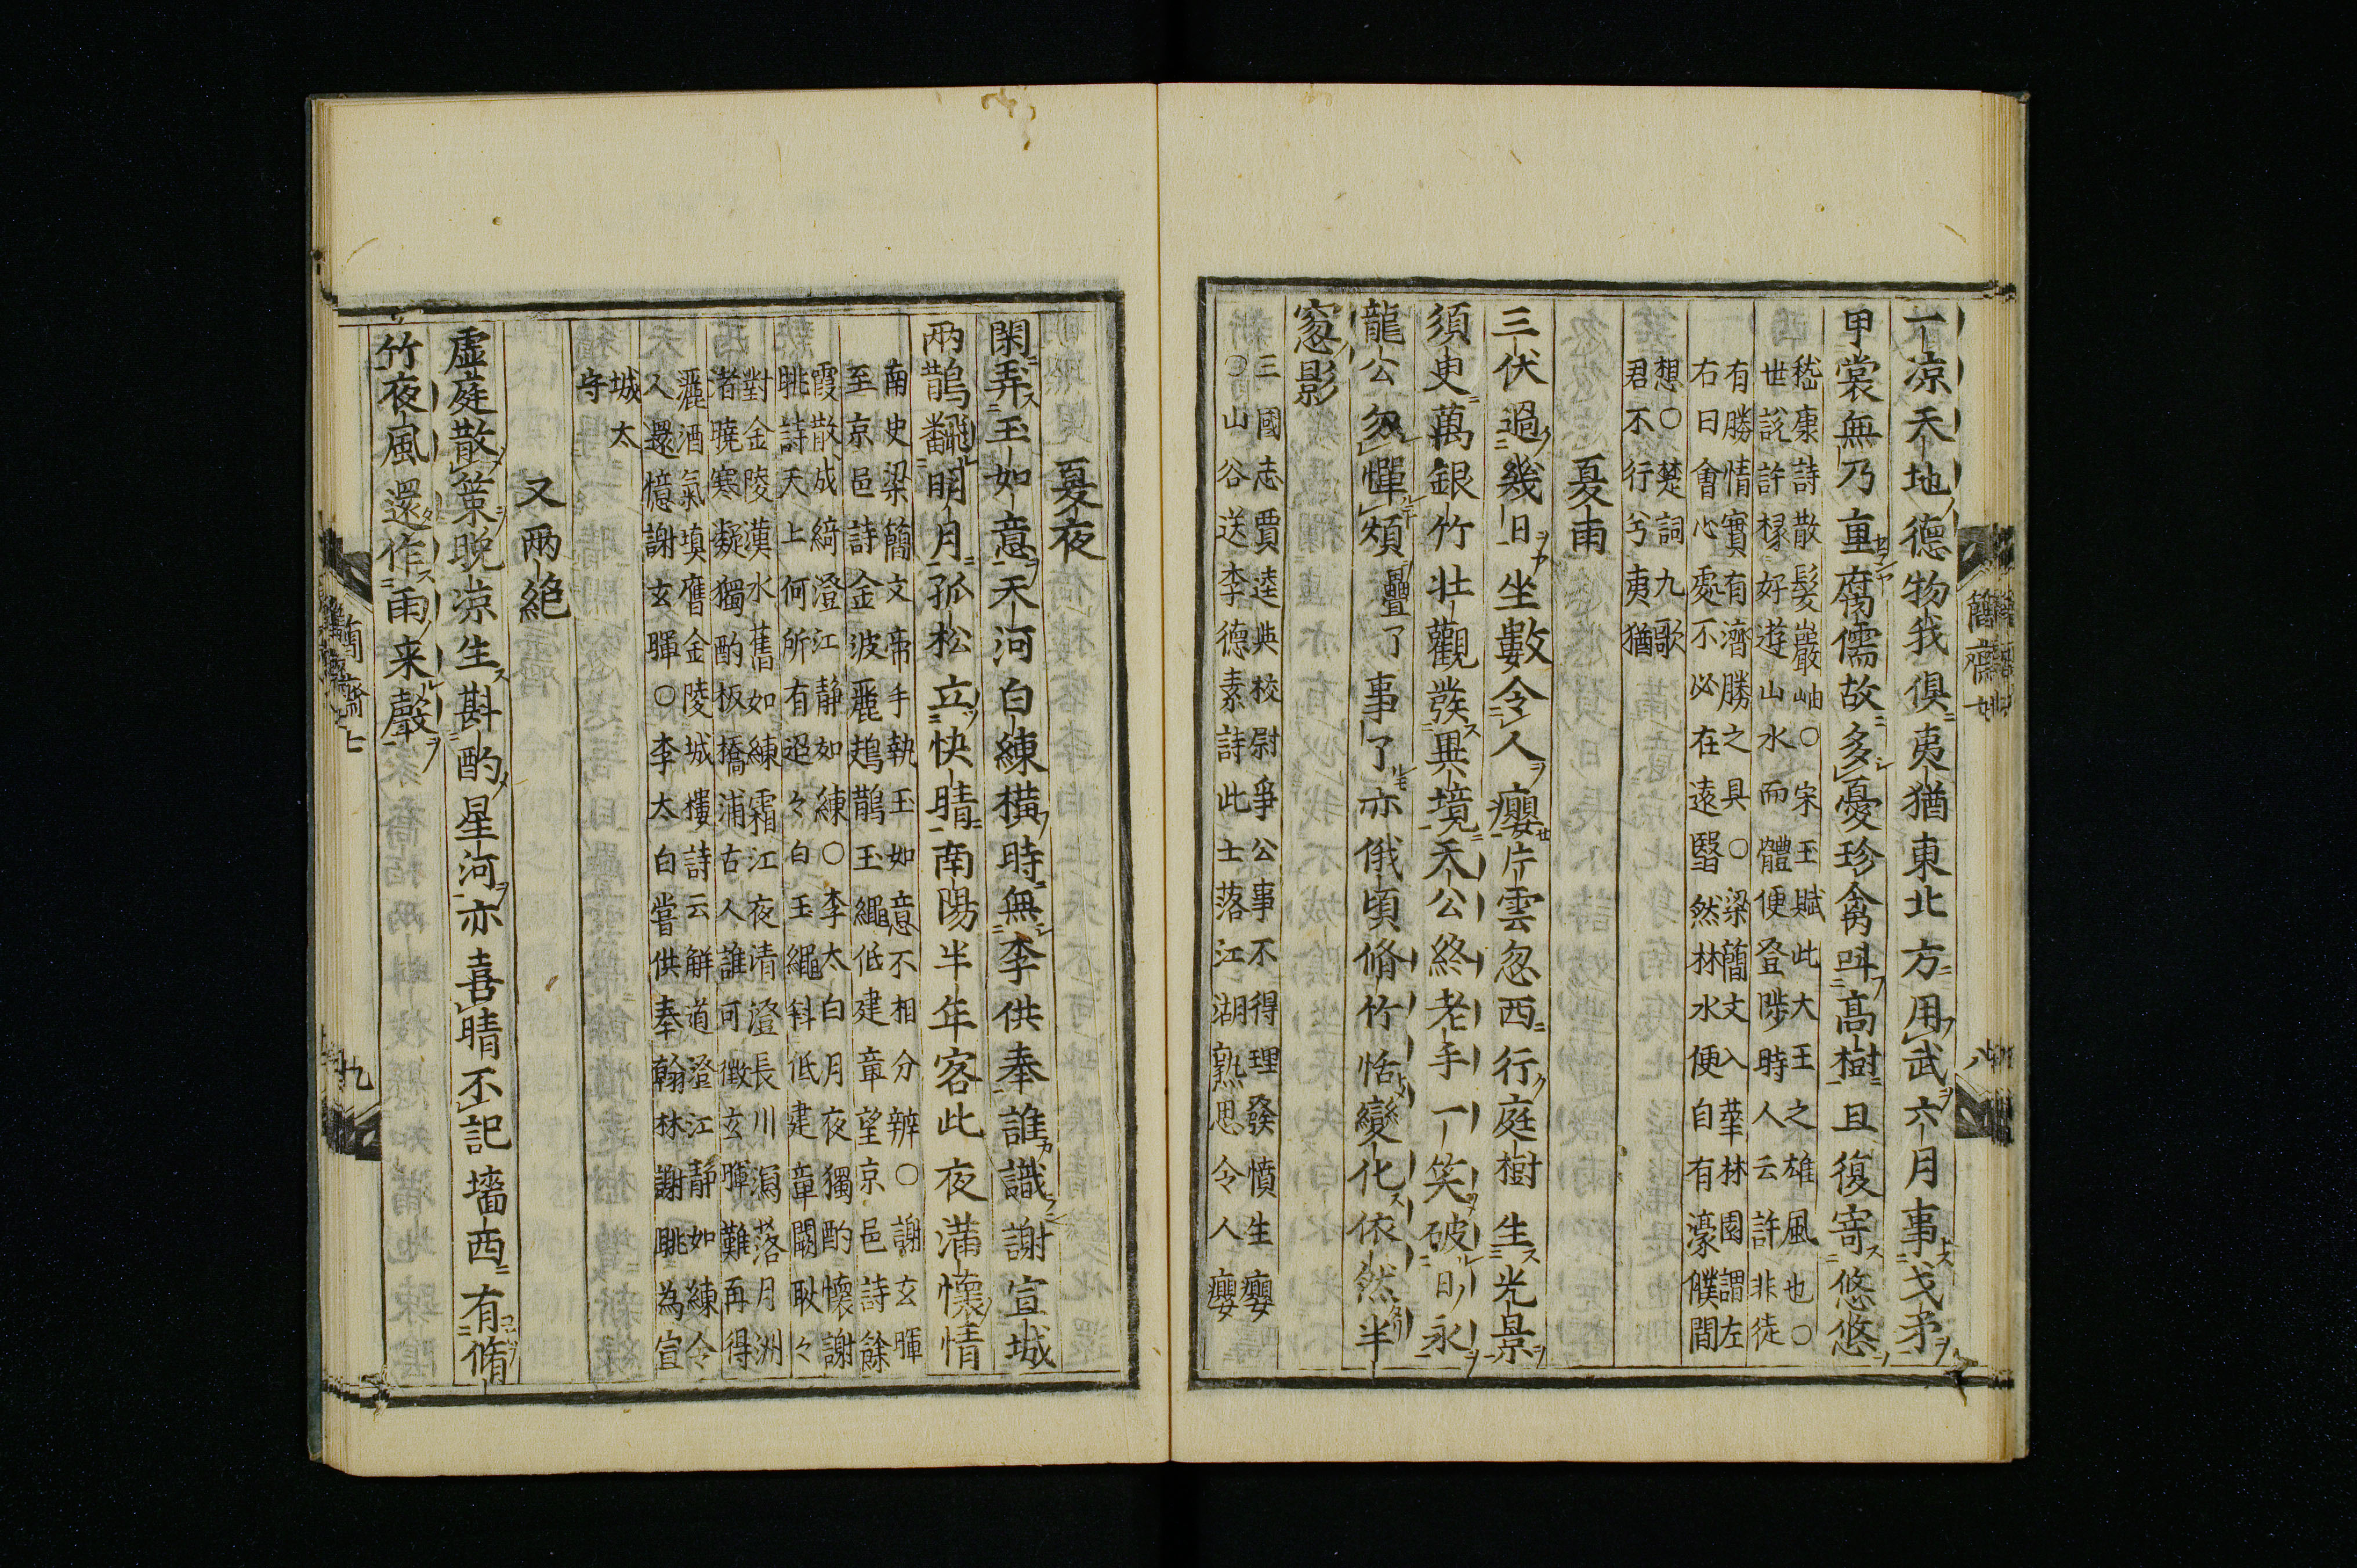 一凉天地德物我俱夷猶東北方用武六月事戈矛
甲裳無乃重腐儒故多憂珍禽叫高樹且復寄悠悠
嵇康詩散髮巖岫○宋玉賦此大王之雄風也○
世說許掾好遊山水而體便登陟時人云許非徒
有勝情實有濟勝之具○梁簡文入華林園謂左
右曰會心處不必在遠翳然林水便自有濠濮間
想○楚詞九歌
君不行兮夷猶
夏雨
三伏過幾日坐數令人癭片雲忽西行庭樹生光景
須臾萬銀竹壯觀發異境天公終老手一笑破日永
龍公勿憚煩疊了事了亦俄頃脩竹恬變化依然半
窓影
三國志賈逵與校尉爭公事不得理發憤生癭
○山谷送李德素詩此士落江湖熟思令人癭
夏夜
閑弄玉如意天河白練横時無李供奉誰識謝宣城
兩鵲翻明月孤松立快晴南陽半年客此夜滿懷情
南史梁簡文帝手執玉如意不相分辨○謝玄暉
至京邑詩金波麗鳷鵲玉繩低建章望京邑詩餘
霞散成綺澄江静如練○李太白月夜獨酌懷謝
眺詩天上何所有迢々白玉繩斜低建章闕耿々
對金陵漢水舊如練霜江夜清澄長川瀉落月洲
渚曉寒凝獨酌板橋浦古人誰可徴玄暉難再得
灑酒氣填膺金陵城樓詩云解道澄江静如練令
人還憶謝玄暉○李太白嘗供奉翰林謝眺為宣
城太
守
又兩絶
虚庭散策晚凉生斟酌星河亦喜晴不記墻西有脩
竹夜風還作雨来聲
簡齋七
九
八